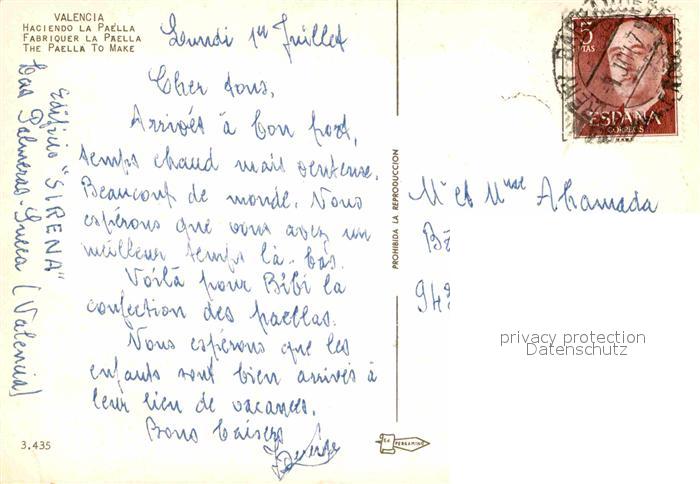 VALENCIA
HACIENDO LA PAELLA
FABRIQUER LA PAELLA
THE PAELLA TO MAKE
Lundi 1er Juillet
Cher tous,
Arrivés à bon port,
temps chaud mais venteux.
Beaucoup de monde. Nous
espérons que vous avez un
meilleur temps là-bas.
Voilà pour Bibi la
confection des paellas.
Nous espérons que les
enfants sont bien arrivés à
leur lieu de vacances.
Bons baisers
Edificio "SIRENA"
Las Palmeras-Sueca (Valencia)
3.435
PROHIBIDA LA REPRODUCCION
PERGAMINO
5
PTAS
ESPAÑA
CORREOS
Mr et Mme Ahamada
949
privacy protection
Datenschutz